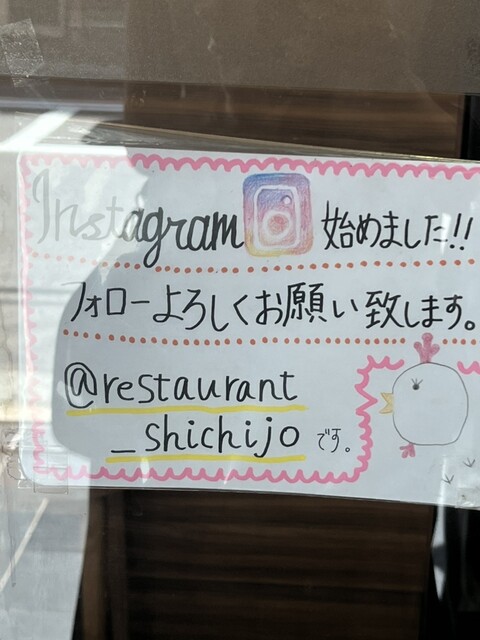 Instagram 始めました!!
フォローよろしくお願い致します。
@restaurant
_shichijoです。